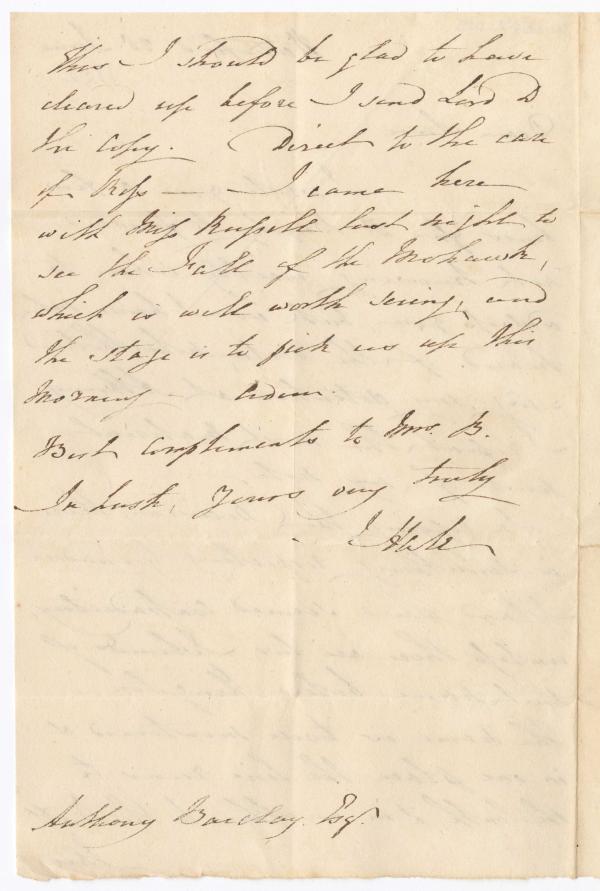 This I should be glad to have
cleared up before I send Lord D
the copy. Direct to the care
of — I came here
with Miss Russell last night to
see the Fall of the Mohawk,
which is well worth seeing, and
the stage is to pick us up this
Morning — adieu.
Best compliments to Mrs. B.
In haste, Yours very truly
J Hale
Anthony Barclay Esqr.